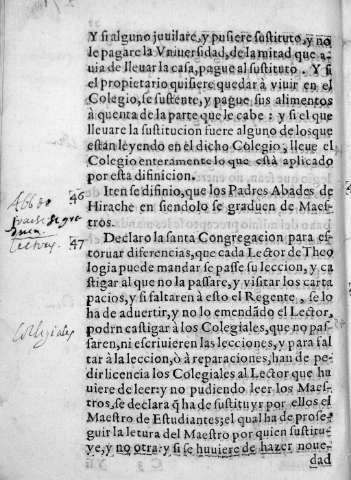 Y si alguno juuilare, y pusiere sustituto, y no
le pagare la Vniuersidad, de la mitad que a-
uia de lleuar la casa, pague al sustituto. Y si
el propietario quisiere quedar à viuir en el
Colegio, se sustente, y pague sus alimentos
à quenta de la parte que le cabe: y si el que
lleuare la sustitucion fuere alguno de los que
estan leyendo en el dicho Colegio, lleue el
Colegio enteramente lo que està aplicado
por esta difinicion.
46 Iten se difinio, que los Padres Abades de
Hirache en siendolo se graduen de Maes-
tros.
47 Declaro la santa Congregacion para es-
toruar diferencias, que cada Lector de Theo
logia puede mandar se passe su leccion, y ca
stigar al que no la passare, y visitar los carta
pacios, y si faltaren à esto el Regente, se lo
ha de aduertir, y no lo emendãdo el Lector,
podrn castigar à los Colegiales, que no pas-
saren, ni escriuieren las lecciones, y para fal
tar à la leccion, ò à reparaciones, han de pe-
dir licencia los Colegiales al Lector que hu
uiere de leer: y no pudiendo leer los Maes-
tros, se declara q̃ ha de sustituyr por ellos el
Maestro de Estudiantes; el qual ha de prose-
guir la letura del Maestro por quien sustitu-
ye, y no otra: y si se huuiere de hazer noue-
dad
Abbad
Lectores.
Colegiales